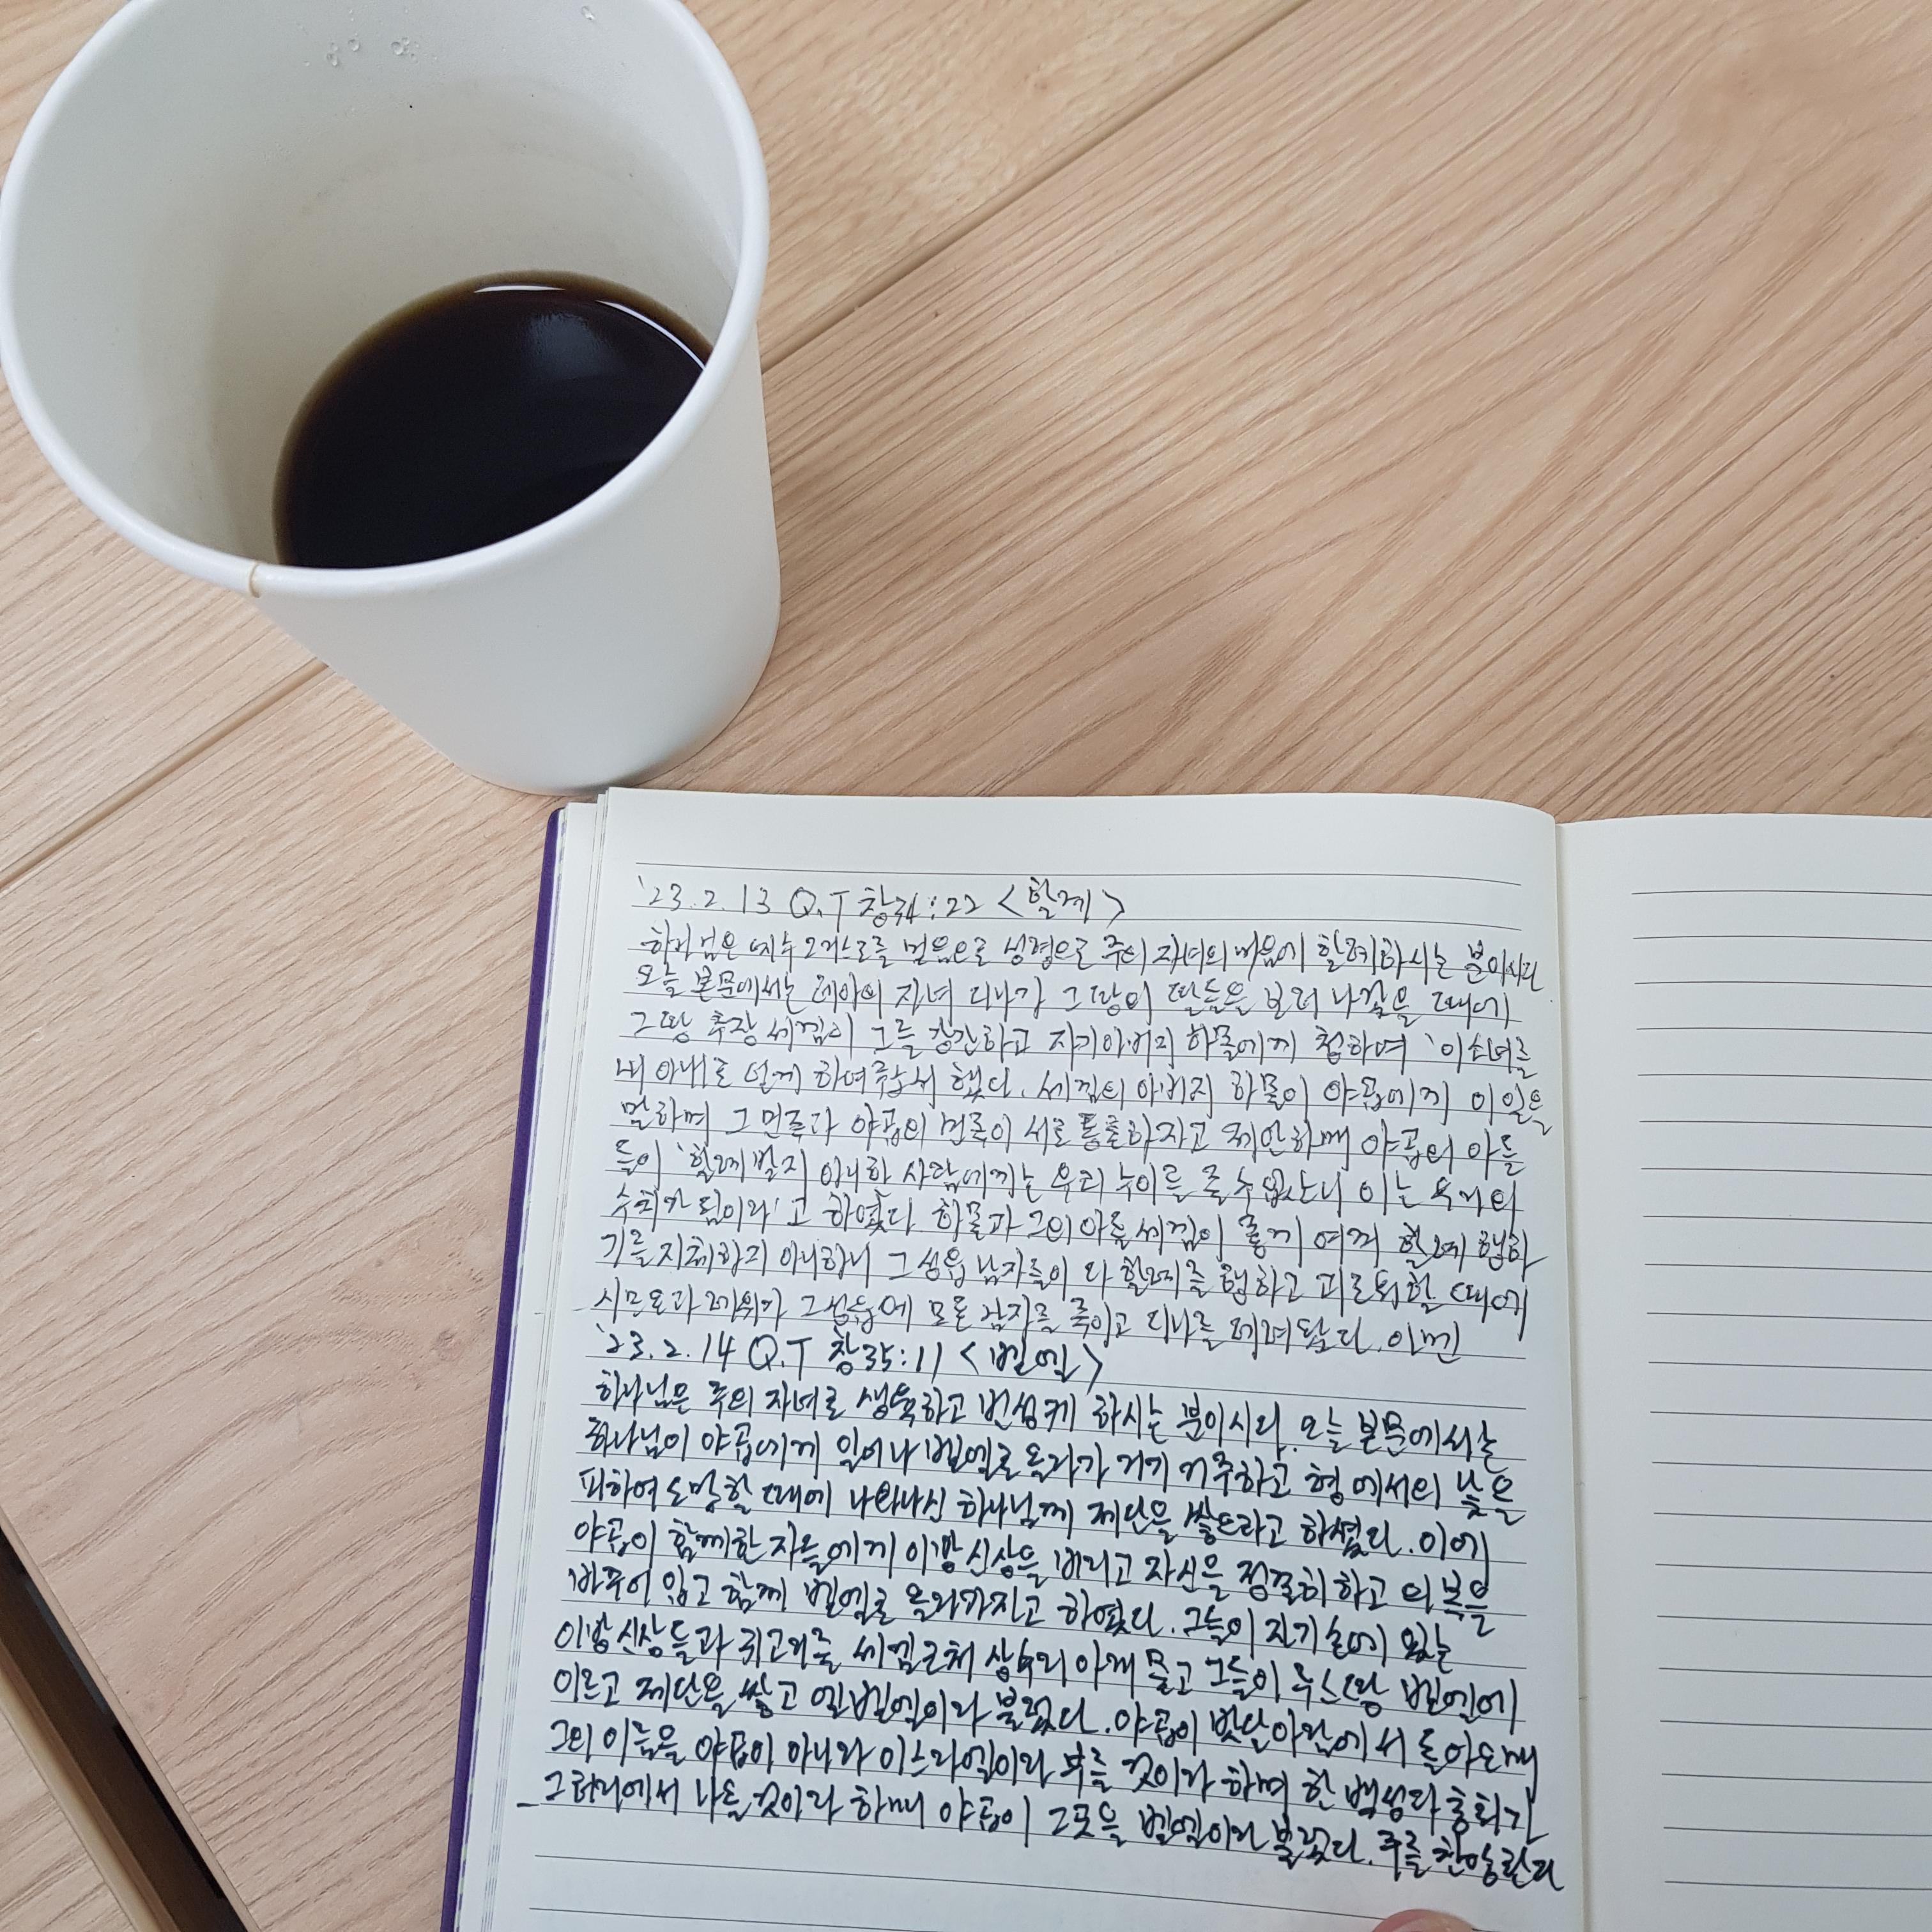 '23.2.13 Q.T 창34:22 <할례>
하나님은 예수 그리스도를 믿음으로 성령으로 주의 자녀의 마음에 할례하시는 분이시다
오늘 본문에서는 레아의 자녀 디나가 그 땅의 딸들을 보러 나갔을 때에
그 땅 추장 세겜이 그를 강간하고 자기 아버지 하몰에게 청하여 '이 소녀를
내 아내로 얻게 하여주소서 했다. 세겜의 아버지 하몰이 야곱에게 이 일을
말하며 그 민족과 야곱의 민족이 서로 통혼하자고 제안하매 야곱의 아들
들이 '할례 받지 아니한 사람에게는 우리 누이를 줄 수 없노니 이는 우리의
수치가 됨이라'고 하였다 하몰과 그의 아들 세겜이 좋게 여겨 할례 행하
기를 지체하지 아니하니 그 성읍 남자들이 다 할례를 행하고 괴로워할 때에
시므온과 레위가 그 성읍에 모든 남자를 죽이고 디나를 데려왔다. 아멘
'23.2.14 Q.T 창35:11 <벧엘>
하나님은 주의 자녀로 생육하고 번성케 하시는 분이시다. 오늘 본문에서는
하나님이 야곱에게 일어나 벧엘로 올라가 거기 거주하고 형 에서의 낯을
피하여 도망할 때에 나타나신 하나님께 제단을 쌓으라고 하셨다. 이에
야곱이 함께한 자들에게 이방 신상을 버리고 자신을 정결히 하고 의복을
바꾸어 입고 함께 벧엘로 올라가자고 하였다. 그들이 자기 손에 있는
이방 신상들과 귀고리를 세겜 근처 상수리 아래 묻고 그들이 루스 땅 벧엘에
이르고 제단을 쌓고 엘벧엘이라 불렀다. 야곱이 밧단아람에서 돌아오매
그의 이름을 야곱이 아니라 이스라엘이라 부를 것이라 하며 한 백성과 총회가
그 허리에서 나올 것이라 하매 야곱이 그곳을 벧엘이라 불렀다. 주를 찬양한다